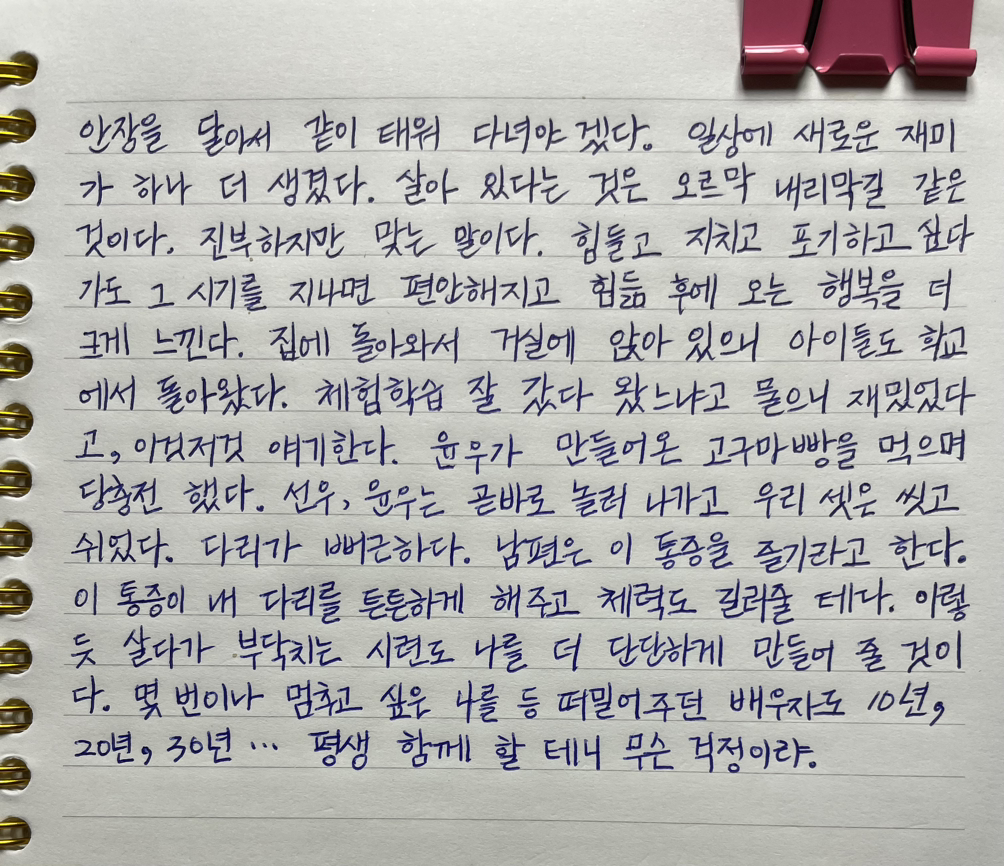 안장을 달아서 같이 태워 다녀야겠다. 일상에 새로운 재미
가 하나 더 생겼다. 살아 있다는 것은 오르막 내리막길 같은
것이다. 진부하지만 맞는 말이다. 힘들고 지치고 포기하고 싶다
가도 그 시기를 지나면 편안해지고 힘듦 후에 오는 행복을 더
크게 느낀다. 집에 돌아와서 거실에 앉아 있으니 아이들도 학교
에서 돌아왔다. 체험학습 잘 갔다 왔느냐고 물으니 재밌었다
고, 이것저것 얘기한다. 윤우가 만들어온 고구마빵을 먹으며
당충전 했다. 선우, 윤우는 곧바로 놀러 나가고 우리 셋은 씻고
쉬었다. 다리가 뻐근하다. 남편은 이 통증을 즐기라고 한다.
이 통증이 내 다리를 튼튼하게 해주고 체력도 길러줄 테다. 이렇
듯 살다가 부닥치는 시련도 나를 더 단단하게 만들어 줄 것이
다. 몇 번이나 멈추고 싶은 나를 등 떠밀어주던 배우자도 10년,
20년, 30년 ... 평생 함께 할 테니 무슨 걱정이랴.